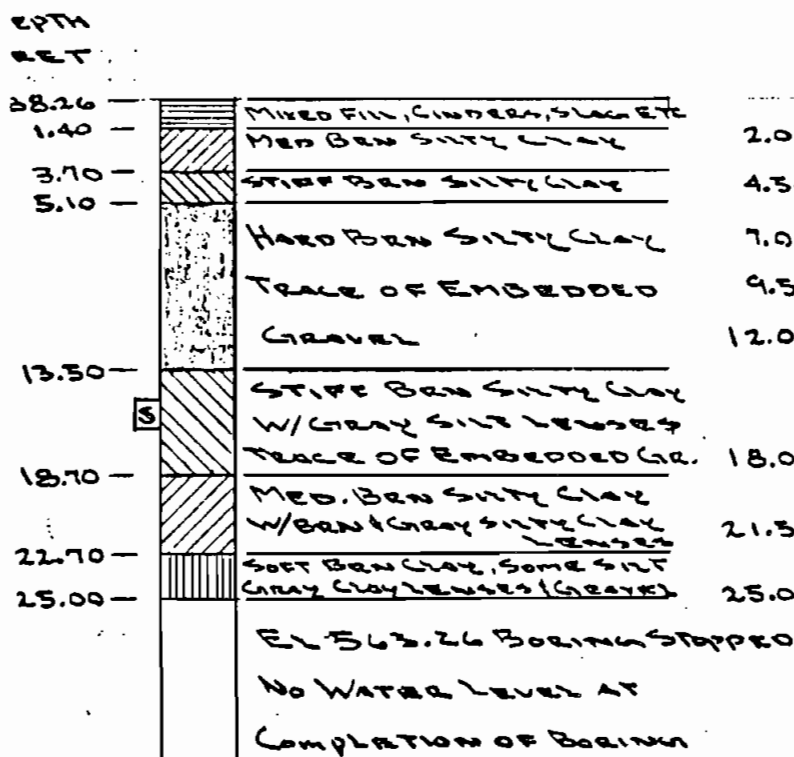 EPTH
EET
38.26 MIXED FILL, CINDERS, SLAG ETC
1.40 MED BRN SILTY CLAY 2.0
3.70 STIFF BRN SILTY CLAY 4.5
5.10
HARD BRN SILTY CLAY 7.0
TRACE OF EMBEDDED 9.5
GRAVEL 12.0
13.50
STIFF BRN SILTY CLAY
S W/GRAY SILT LENSES
TRACE OF EMBEDDED GR. 18.0
18.70
MED. BRN SILTY CLAY
W/BRN & GRAY SILTY CLAY
LENSES 21.5
22.70
SOFT BRN CLAY, SOME SILT
25.00 GRAY CLAY LENSES 25.0
EL 563.26 BORING STOPPED
NO WATER LEVEL AT
COMPLETION OF BORING